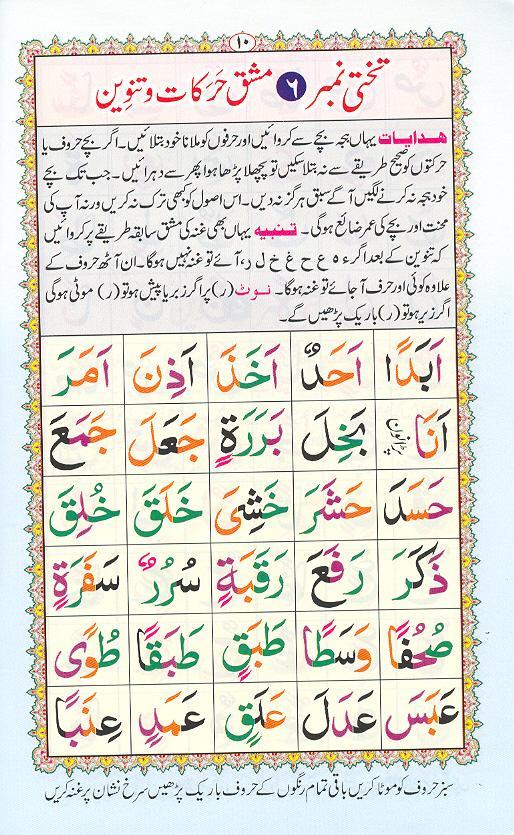 ۱۰
تختی نمبر ۶ مشق حرکات و تنوین
ھدایات یہاں ہجہ بچے سے کروائیں اور حرفوں کو ملانا خود بتلائیں۔ اگر بچے حروف یا
حرکتوں کو صحیح طریقے سے نہ بتلا سکیں تو پچھلا پڑھا ہوا پھر سے دہرائیں۔ جب تک بچے
خود ہجہ نہ کرنے لگیں آگے سبق ہرگز نہ دیں۔ اس اصول کو کبھی ترک نہ کریں ورنہ آپ کی
محنت اور بچے کی عمر ضائع ہوگی۔ تنبیہ یہاں بھی غنہ کی مشق سابقہ طریقے پر کروائیں
کہ تنوین کے بعد اگر ء ہ ع ح غ خ ل ر، آئے تو غنہ نہیں ہوگا۔ ان آٹھ حروف کے
علاوہ کوئی اور حرف آجائے تو غنہ ہوگا۔ نوٹ (ر) پر اگر زبر یا پیش ہو تو (ر) موٹی ہوگی
اگر زیر ہو تو (ر) باریک پڑھیں گے۔
اَبَدًا اَحَدٌ اَخَذَ اَذِنَ اَمَرَ
اَنَا بَخِلَ بَرَرَةٍ جَعَلَ جَمَعَ
حَسَدَ حَشَرَ خَشِیَ خَلَقَ خُلِقَ
ذَكَرَ رَفَعَ رَقَبَةٍ سُرُرٌ سَفَرَةٍ
صُحُفًا وَسَطًا طَبَقٍ طَبَقًا طُوًی
عَبَسَ عَدَلَ عَلَقٍ عَمَدٍ عِنَبًا
سبز حروف کو موٹا کریں باقی تمام رنگوں کے حروف باریک پڑھیں سرخ نشان پر غنہ کریں